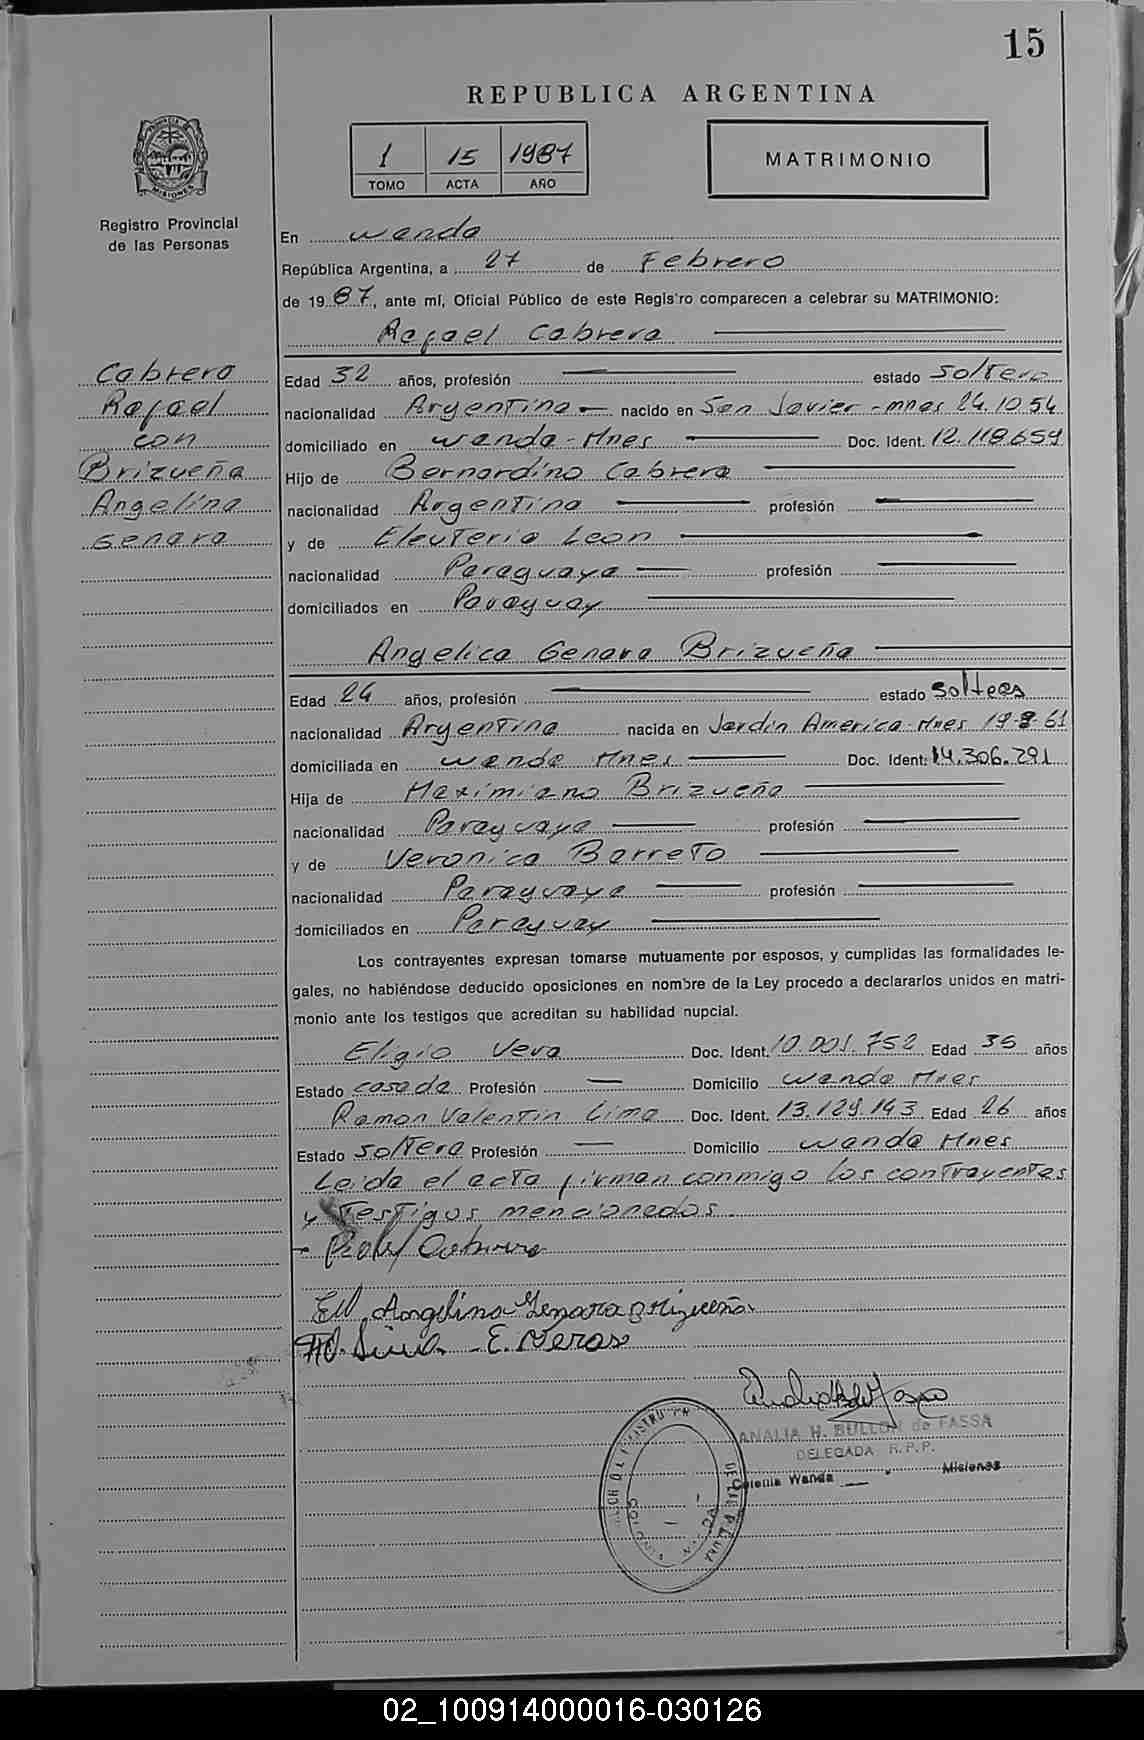 15
REPUBLICA ARGENTINA
1 15 1987
TOMO ACTA AÑO
MATRIMONIO
Registro Provincial
de las Personas
En Wanda
República Argentina, a 27 de Febrero
de 1987, ante mí, Oficial Público de este Registro comparecen a celebrar su MATRIMONIO:
Rafael Cabrera
Cabrera
Rafael
con
Brizueña
Angelina
Genara
Edad 32 años, profesión — estado Soltero
nacionalidad Argentina — nacido en San Javier - Mnes 24.10.54
domiciliado en Wanda - Mnes — Doc. Ident. 12.118.659
Hijo de Bernardino Cabrera
nacionalidad Argentina — profesión —
y de Eleuteria Leon
nacionalidad Paraguaya — profesión —
domiciliados en Paraguay
Angelica Genara Brizueña
Edad 24 años, profesión — estado Soltera
nacionalidad Argentina nacida en Jardin America - Mnes 19-8-61
domiciliada en Wanda Mnes — Doc. Ident: 14.306.291
Hija de Maximiano Brizueña
nacionalidad Paraguaya — profesión —
y de Veronica Barreto
nacionalidad Paraguaya — profesión —
domiciliados en Paraguay
Los contrayentes expresan tomarse mutuamente por esposos, y cumplidas las formalidades le-
gales, no habiéndose deducido oposiciones en nombre de la Ley procedo a declararlos unidos en matri-
monio ante los testigos que acreditan su habilidad nupcial.
Eligio Vera Doc. Ident. 10.001.752 Edad 35 años
Estado casada Profesión — Domicilio Wanda Mnes
Ramon Valentin Lima Doc. Ident. 13.129.143 Edad 26 años
Estado Soltera Profesión — Domicilio Wanda Mnes
Leida el acta firman conmigo los contrayentes
y Testigos mencionados.
Angelina Genara Brizueña
E. Veras
ANALIA H. BULLON de FASSA
DELEGADA R.P.P.
Colonia Wanda — Misiones
02_100914000016-030126